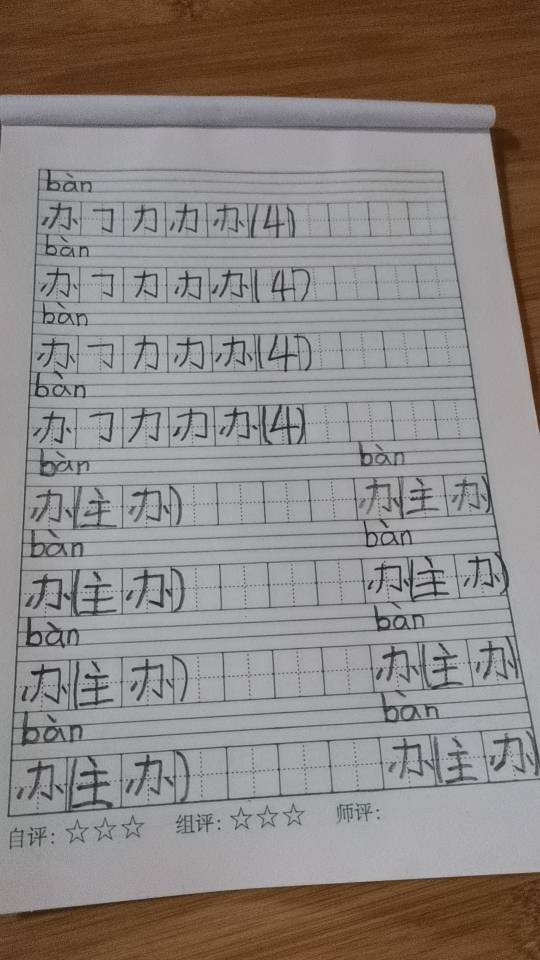 bàn
办 ㇆ 力 力 办 (4)
bàn
办 ㇆ 力 办 办 (4)
bàn
办 ㇆ 力 办 办 (4)
bàn
办 ㇆ 力 办 办 (4)
bàn bàn
办 (主 办) 办 (主 办)
bàn bàn
办 (主 办) 办 (主 办)
bàn bàn
办 (主 办) 办 (主 办)
bàn bàn
办 (主 办) 办 (主 办)
自评: ☆☆☆ 组评: ☆☆☆ 师评: